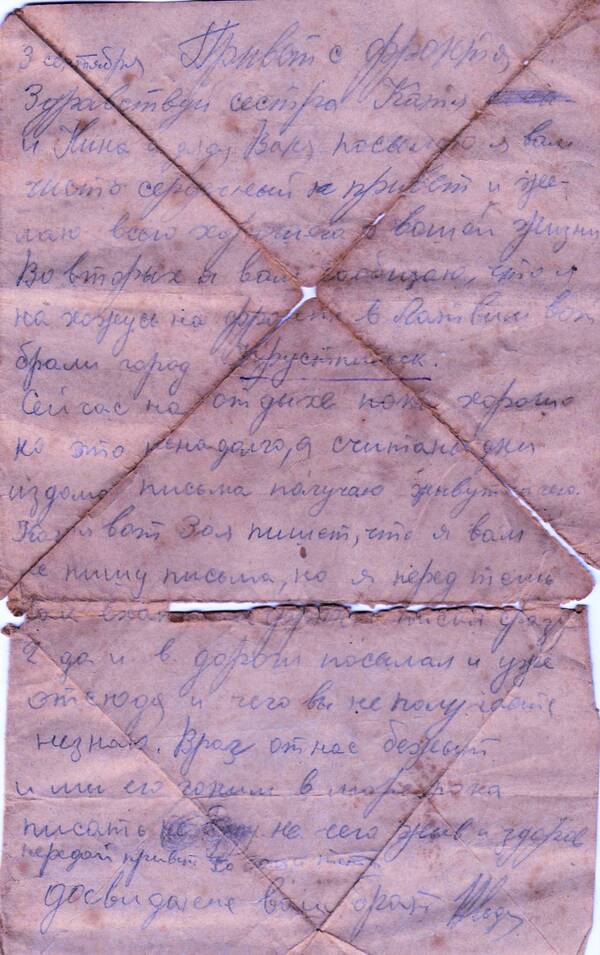 3 сентября Привет с фронта
Здравствуй сестра Катя
и Нина и дядя Ваня посылаю я вам
чисто сердечный привет и же-
лаю всего хорошего в вашей жизни
Во вторых я вам сообщаю, что я
на хожусь на фронте в Латвии вот
брали город Крустпилск.
Сейчас на отдыхе пока хорошо
но это ненадолго, а считаны дни
из дома письма получаю живут
Катя вот Зоя пишет, что я вам
не пишу письма, но я перед тем
вам на фронт писал сразу
2 да и в дороги посылал и уже
отсюда и чего вы не получаете
незнаю. Враг от нас бежит
и ми его гоним в море пока
писать не чего жив и здоров
передай привет
досвидание ваш брат